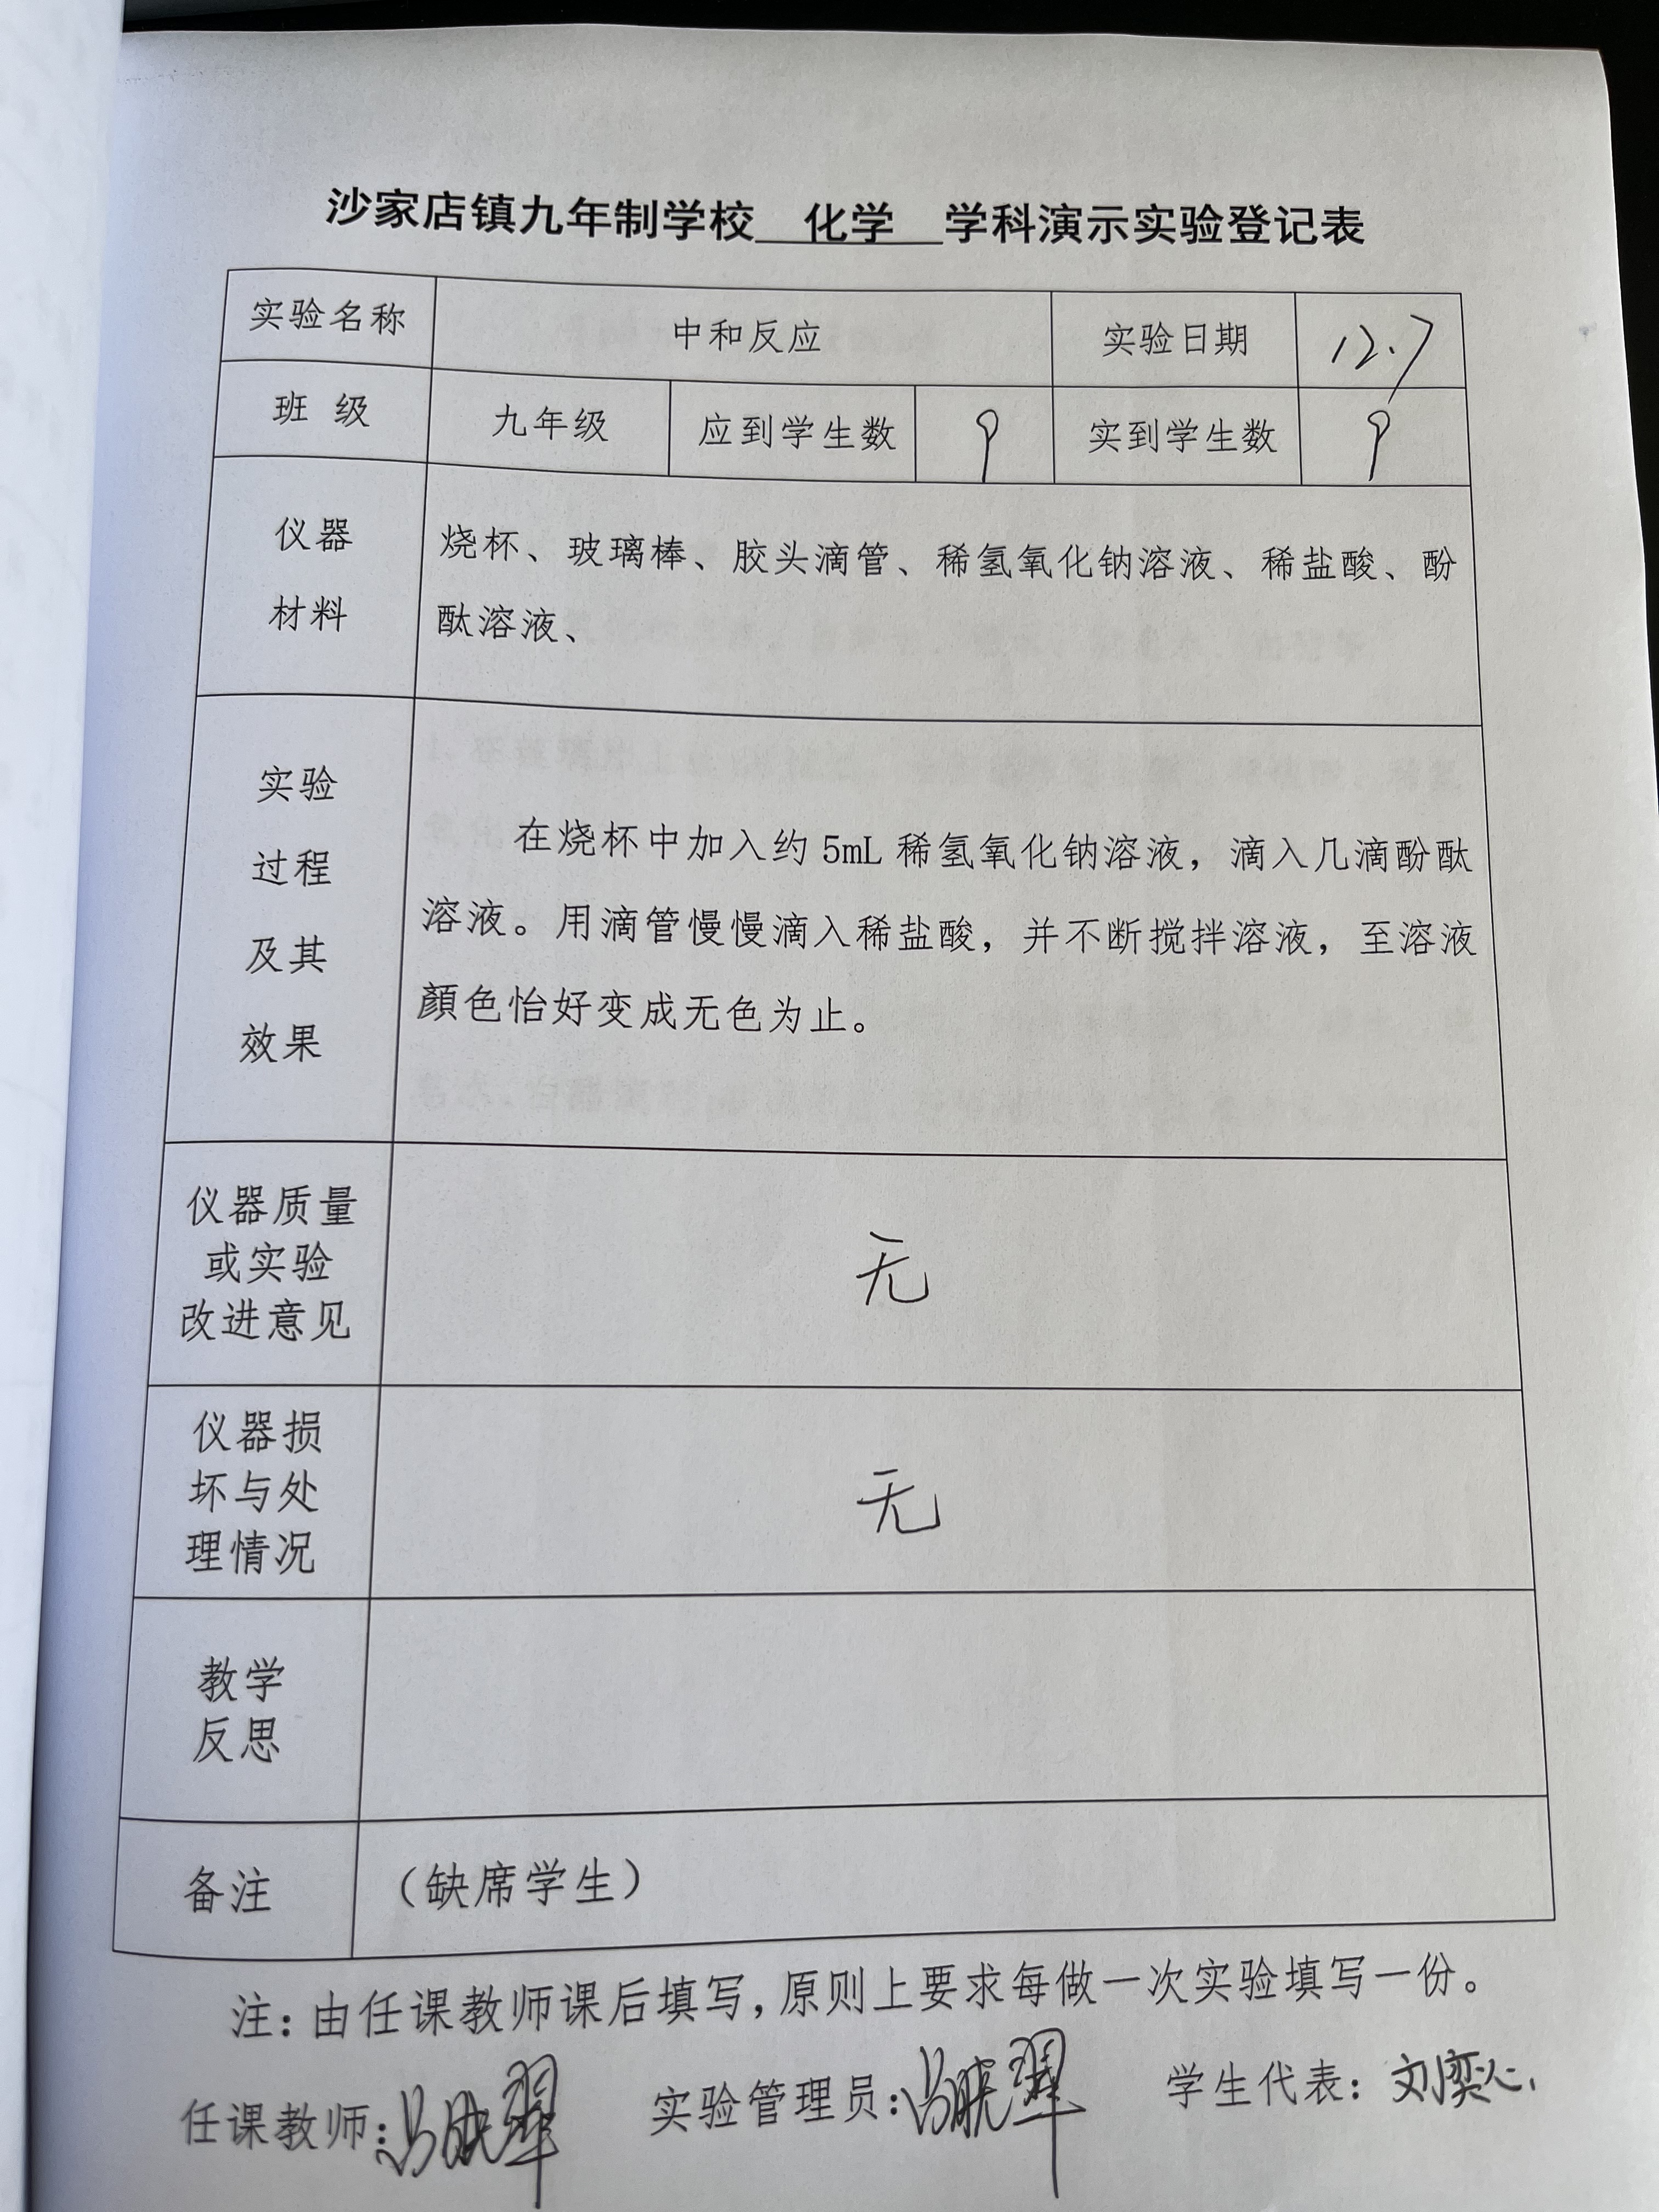 沙家店镇九年制学校 化学 学科演示实验登记表
实验名称 中和反应 实验日期 12.7
班 级 九年级 应到学生数 9 实到学生数 9
仪器
材料
烧杯、玻璃棒、胶头滴管、稀氢氧化钠溶液、稀盐酸、酚
酞溶液、
实验
过程
及其
效果
在烧杯中加入约 5mL 稀氢氧化钠溶液，滴入几滴酚酞
溶液。用滴管慢慢滴入稀盐酸，并不断搅拌溶液，至溶液
顏色怡好变成无色为止。
仪器质量
或实验
改进意见
无
仪器损
坏与处
理情况
无
教学
反思
备注 （缺席学生）
注：由任课教师课后填写，原则上要求每做一次实验填写一份。
任课教师： 实验管理员： 学生代表：刘奕心